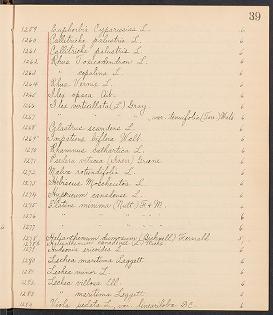 39
1259 Euphorbia Cyparissias L. 6
1260 Callitriche palustris L. 6
1261 Callitriche palustris L. 6
1262 Rhus Toxicodendron L. 6
1263 " copallina L. 6
1264 Rhus Vernix L. 6
1265 Ilex opaca Ait. 6
1266 Ilex verticillata (L.) Gray 6
1267 " " " var. tenuifolia (Torr.) Wats 6
1268 Celastrus scandens L. 6
1269 Impatiens biflora Walt. 6
1270 Rhamnus cathartica L. 6
1271 Parthenocissus 6
1272 Malva rotundifolia L. 6
1273 Hibiscus Moscheutos L. 6
1274 Hypericum canadense L. 6
1275 Elatine minima (Nutt.) F. & M. 6
1276 " " " 6
1277 " " " 6
1278 Helianthemum dumosum (Bicknell) Fernald
Helianthemum canadense (L.) Michx
Hudsonia ericoides L. 6
1280 Lechea maritima Leggett 6
1281 Lechea minor L. 6
1282 Lechea villosa Ell. 6
1283 " maritima Leggett 6
1284 Viola pedata L., var. lineariloba DC. 6